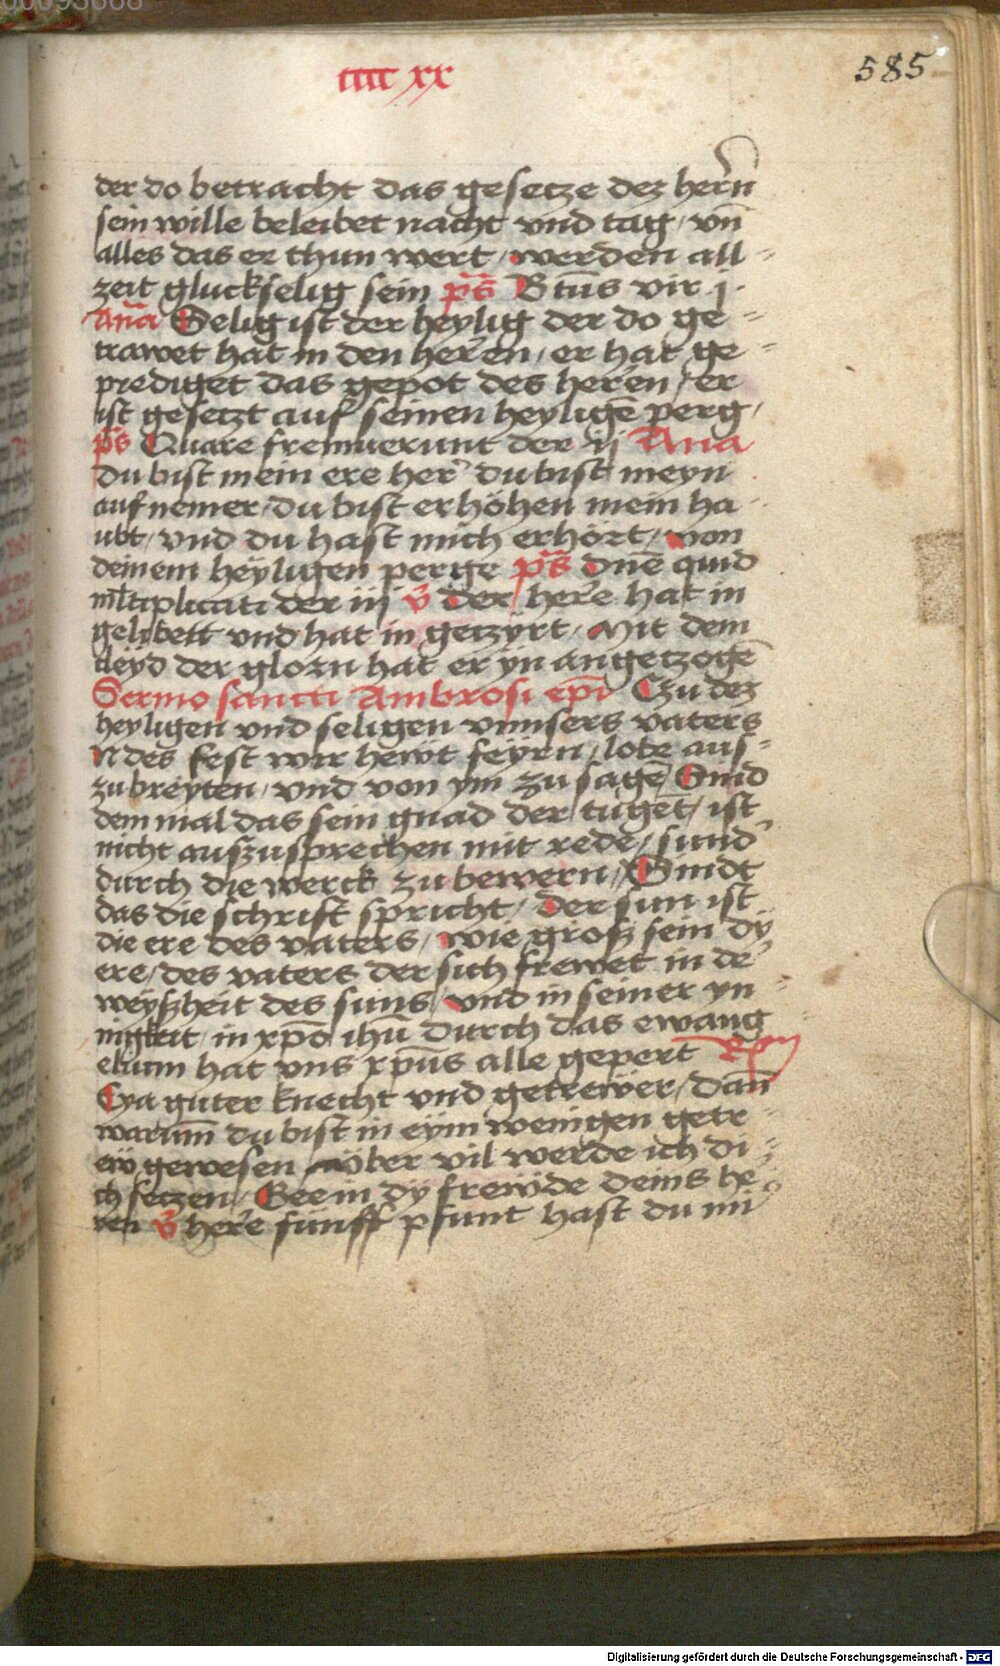 cccc xx
585
der do betracht das gesetze dez hern̄
sein wille beleibet nacht vnd tag / vn̄
alles das er thun wert / werden all-
zeit gluckselig sein ps̄ Btūs vir j.
An̄a Selig ist der heylig der do ge-
trawet hat in den herren / er hat ge-
prediget das gepot des herren / er
ist gesetzt auf seinen heyligē perg /
ps̄ Quare fremuerunt der ij Ana
du bist mein ere her̄ du bist meyn
aufnemer / du bist erhöhen mein ha-
ubt / vnd du hast mich erhört / von
deinem heyligen perge ps̄ dn̄e quid
ml̄tiplicati der iij v̄ der her̄e hat in
gelibett vnd hat in getzÿrt / Mit dem
cleÿd der glorn hat er ÿn angetzogē
Sermo sancti Ambrosi ep̄i Czu dez
heyligen vnd seligen vnnsers vaters
N des fest wir hewt feÿrn / lobe aus-
zu breyten / vnd von ym zu sagē Sind
dem mal das sein gnad der tuget / ist
nicht auszusprechen mit rede / sund̄
durch die werck zu bewern // Sindt
das die schrift spricht / Der sun ist
die ere des vaters / wie groß sein dy
ere / des vaters der sich frewet in dē
weyßheit des suns / vnd in seiner yn-
nigkeit / in xp̄o ihū durch das ewang
elium hat vns xp̄us alle gepert
Eya guter knecht vnd getrewer / dan̄
warum̄ du bist in eym wenigen getr-
ew gewesen / über vil werde ich di-
ch setzen / Gee in dy frewde deins he-
ren v̄ her̄e funff pfunt hast du mi
Digitalisierung gefördert durch die Deutsche Forschungsgemeinschaft - DFG